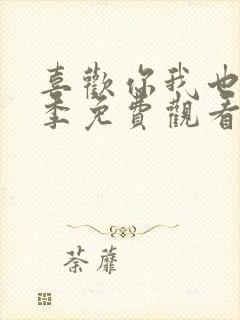 喜歡你我也
季免費觀看
荼蘼